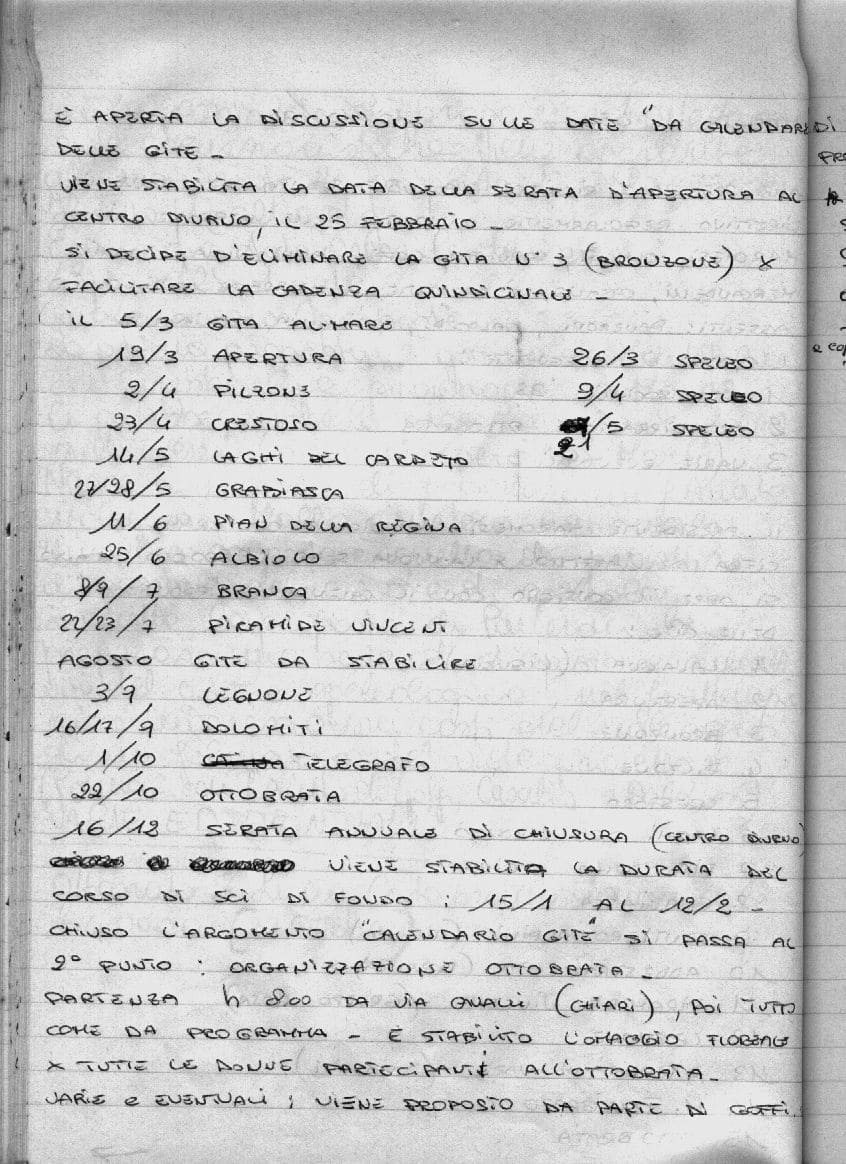 È APERTA LA DISCUSSIONE SULLE DATE "DA CALENDARE DI
DELLE GITE -
VIENE STABILITA LA DATA DELLA SERATA D'APERTURA AL
CENTRO DIURNO, IL 25 FEBBRAIO -
SI DECIDE D'ELIMINARE LA GITA N 3 (BRONZONE) X
FACILITARE LA CADENZA QUINDICINALE -
IL 5/3 GITA AL MARE
19/3 APERTURA 26/3 SPELEO
2/4 PILZONE 9/4 SPELEO
23/4 CRESTOSO 21/5 SPELEO
14/5 LAGHI DEL CARDETO
27/28/5 GRABIASCA
11/6 PIAN DELLA REGINA
25/6 ALBIOLO
8/9/7 BRANCA
22/23/7 PIRAMIDE VINCENT
AGOSTO GITE DA STABILIRE
3/9 LEGNONE
16/17/9 DOLOMITI
1/10 TELEGRAFO
22/10 OTTOBRATA
16/12 SERATA ANNUALE DI CHIUSURA (CENTRO DIURNO)
VIENE STABILITA LA DURATA DEL
CORSO DI SCI DI FONDO : 15/1 AL 12/2 -
CHIUSO L'ARGOMENTO "CALENDARIO GITE" SI PASSA AL
2° PUNTO : ORGANIZZAZIONE OTTOBRATA -
PARTENZA h 8.00 DA VIA (CHIARI), POI TUTTO
COME DA PROGRAMMA - È STABILITO L'OMAGGIO FLOREALE
X TUTTE LE DONNE PARTECIPANTI ALL'OTTOBRATA -
VARIE e EVENTUALI ; VIENE PROPOSTO DA PARTE DI GOFFI